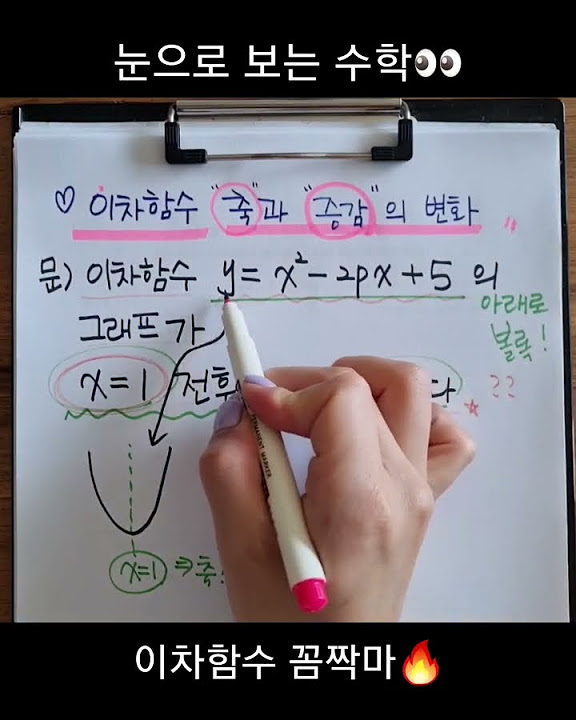 눈으로 보는 수학👀
♡ 이차함수 "축"과 "증감"의 변화
문) 이차함수 y = x² - 2px + 5 의
그래프가
아래로
볼록!
x=1 전후
다
??
x=1 ⇒ 축
PERMANENT MARKER
이차함수 꼼짝마🔥